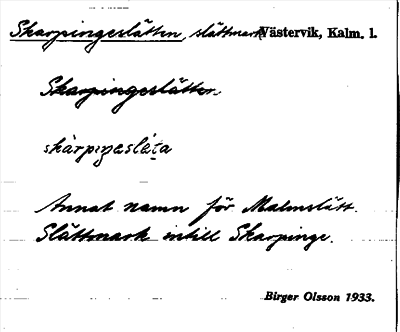 Skarpingeslätten, slättmark Västervik, Kalm. l.
Skarpingeslätten
skàrpıŋəslǽta
Annat namn för Malmslätt.
Slättmark intill Skarpinge.
Birger Olsson 1933.